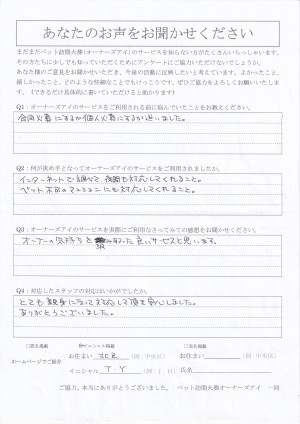 あなたのお声をお聞かせください
まだまだペット訪問火葬(オーナーズアイ)のサービスを知らない方がたくさんいらっしゃいます。
その方たちに少しでも知っていただくためにアンケートにご協力いただけないでしょうか。
あなた様のご意見をお聞かせいただき、今後の活動に反映したいと考えています。よかったこと、
嬉しかったこと、どのような些細なことでもけっこうです。ぜひご協力をよろしくお願いいたしま
す。（できるだけ具体的に書いていただけると助かります）
Q1：オーナーズアイのサービスをご利用される前に悩んでいたことをお教えください。
合同火葬にするか個人火葬にするか迷いました。
Q2：何が決め手となってオーナーズアイのサービスをご利用されましたか。
インターネットで調べて、夜間も対応してくれること。
ペット不可のマンションにも対応してくれること。
Q3：オーナーズアイのサービスを実際にご利用なさってみての感想をお聞かせください。
オーナーの気持ちを 良いサービスと思います。
Q4：対応したスタッフの対応はいかがでしたか。
とても親身になって対応して頂き安心しました。
ありがとうございました。
□匿名掲載 イニシャル掲載 □実名掲載
ホームページでご紹介 お住まい 北区 （例：中央区） お住まい （例：中央区）
イニシャル T・Y （例：J．H） 氏名
ご協力、本当にありがとうございました。 ペット訪問火葬オーナーズアイ 一同